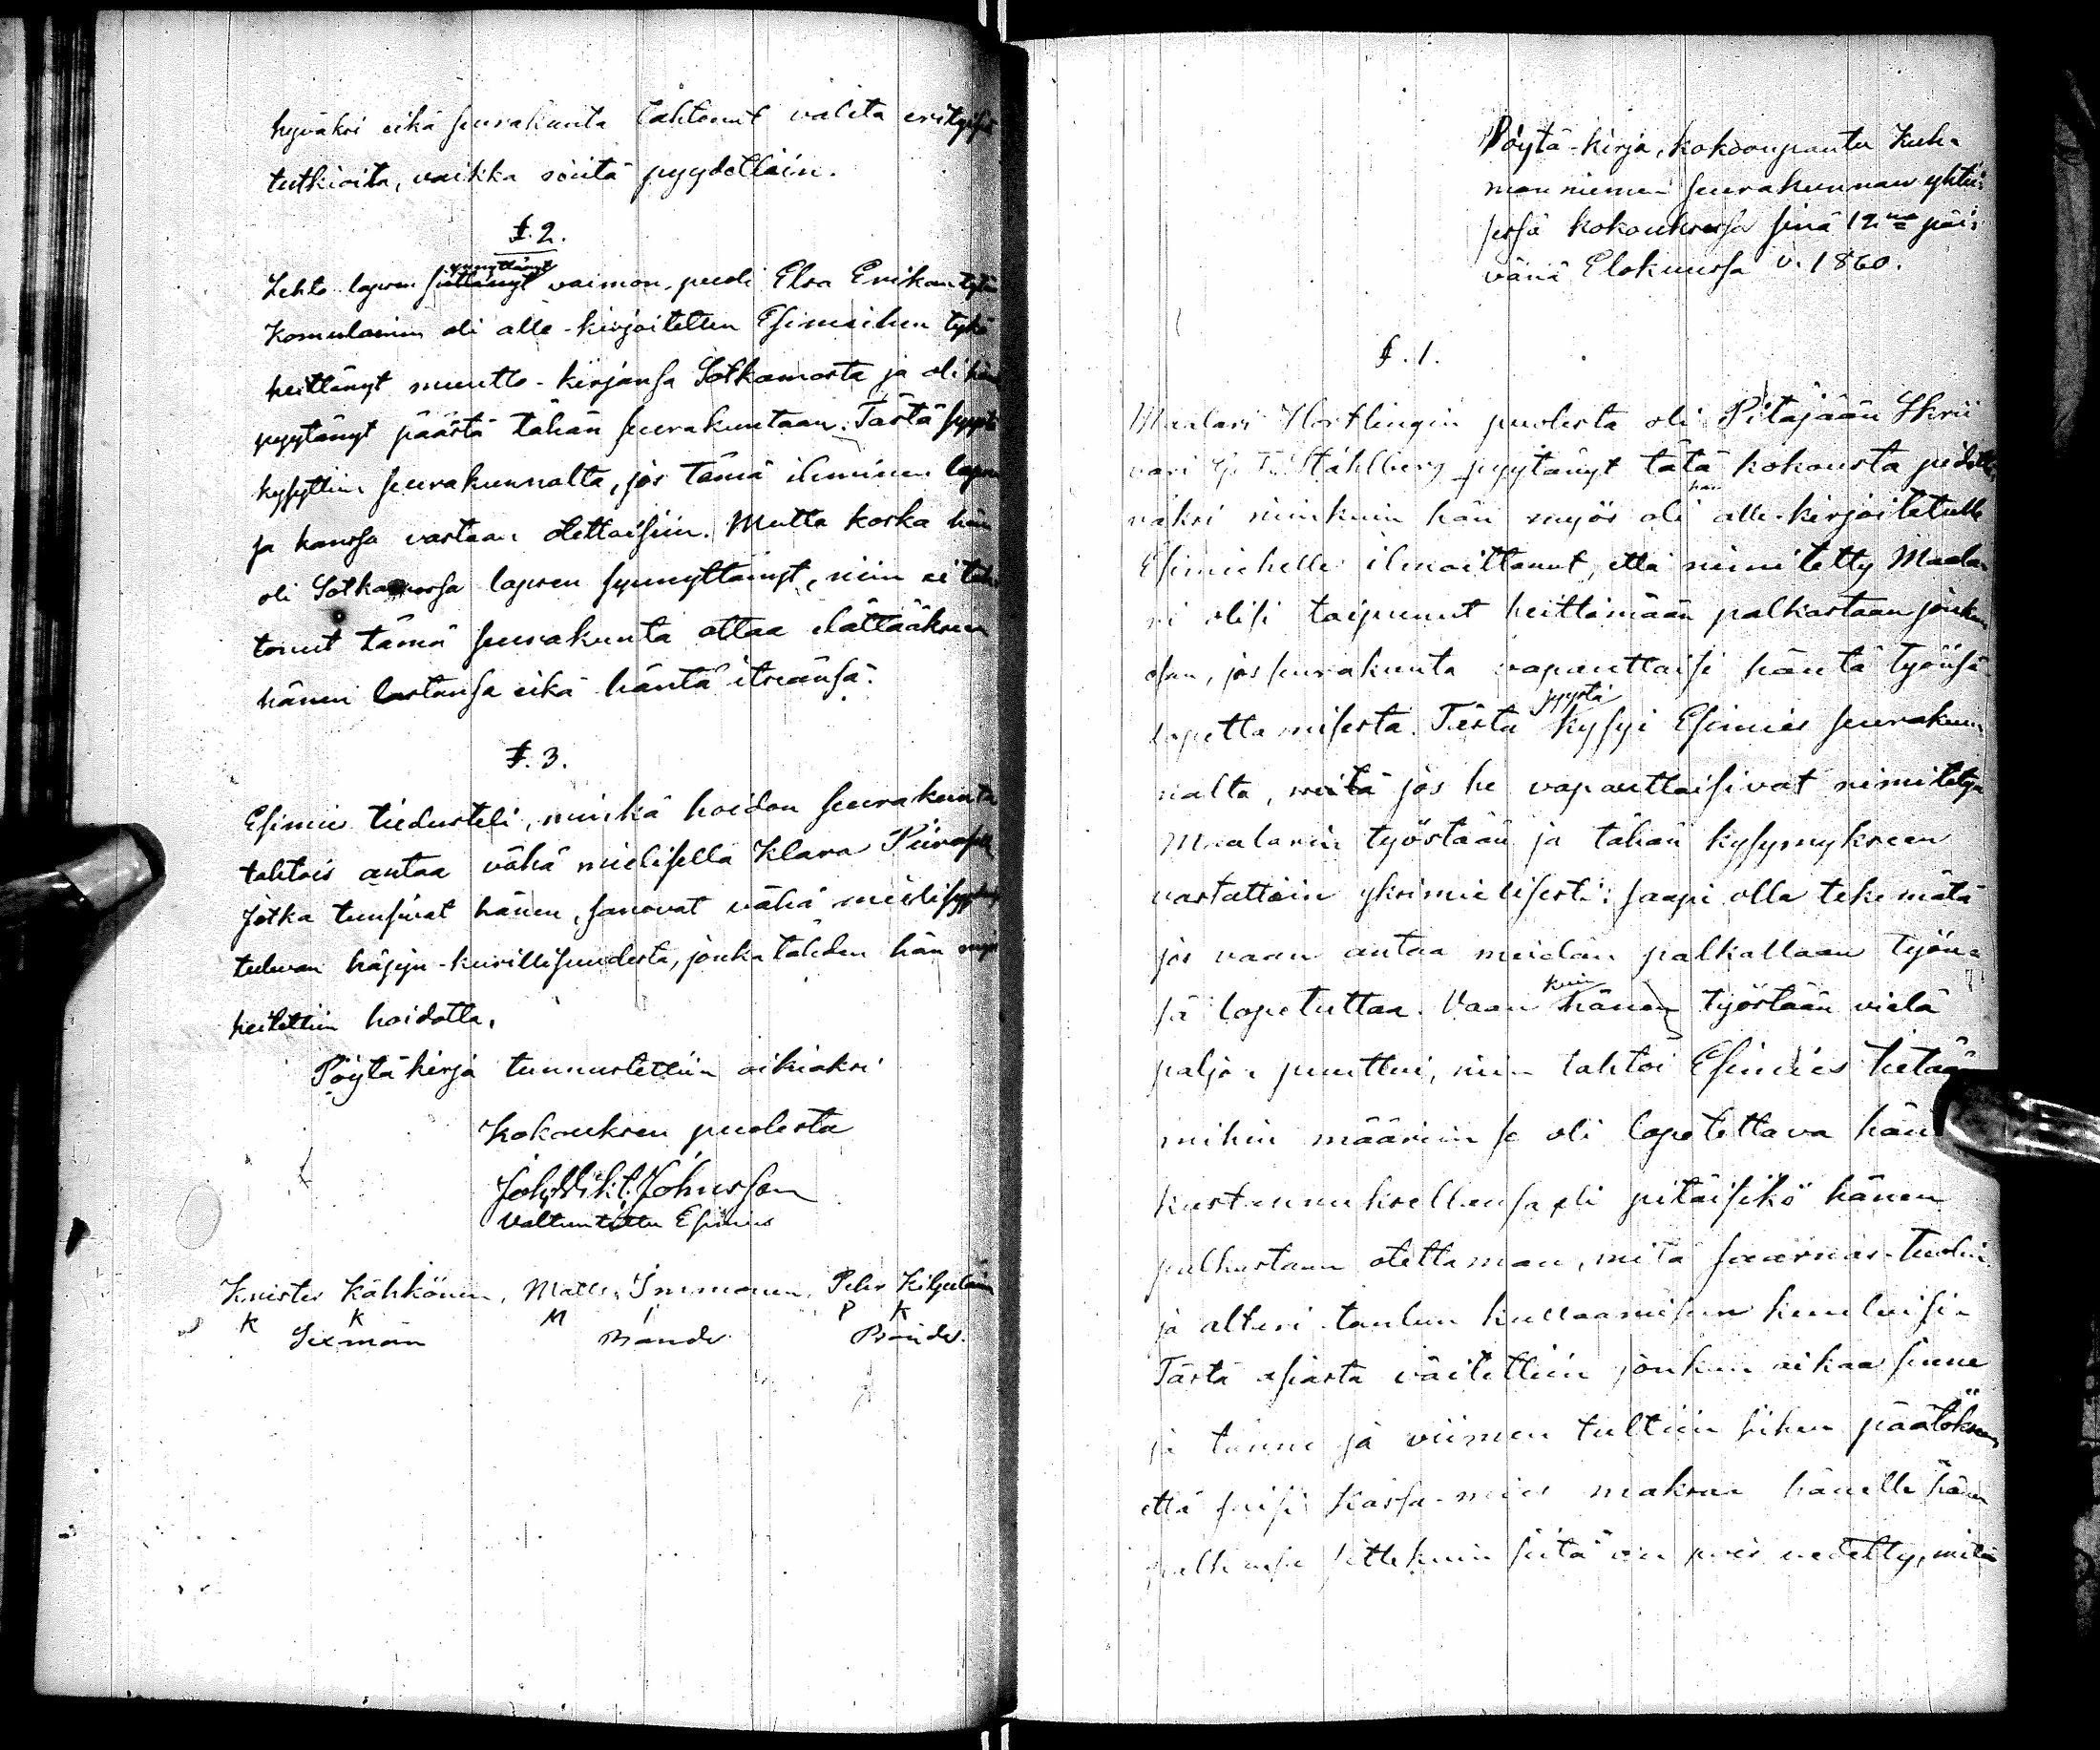 hyväksi eikä seurakunta tahtonut valita erityisiä
tutkioita, vaikka niitä pyydettiin.
§. 2.
synnyttänyt
Lehto lapsen siittänyt vaimon-puoli Elsa Erikan tytär
Komulainen oli alle-kirjoitetun Esimiehen tykö
heittänyt muutto-kirjansa Sotkamosta ja oli hän
pyytänyt päästä tähän seurakuntaan. Tästä syystä
kysyttiin seurakunnalta, jos tämä ihminen lapsen
sa kanssa vastaan otettaisiin. Mutta koska hän
oli Sotkamossa lapsen synnyttänyt, niin ei tah
tonut tämä seurakunta ottaa elättääksen
hänen lastansa eikä häntä itseänsä.
§. 3.
Esimies tiedusteli, minkä hoidon seurakunta
tahtois antaa vähä mielisellä Klara Piiraisel
Jotka tunsivat hänen, sanovat vähä mielisyyden
tulevan häjyn-kurillisuudesta, jonka tähden hän myös
heitettiin hoidotta.
Pöytäkirja tunnustettiin oikiaksi
Kokouksen puolesta
Joh. Vikt. Johnsson
Valtuutettu Esimies
Krister Kähkönen, Matts Immonen, Pehr Kilpeläinen
K K M I P K
Sexman Bonde Bonde.
Pöytä-kirja, kokoonpantu Kuh-
moniemen seurakunnan yhtei-
sessä kokouksessa sinä 12na päi-
vänä Elokuussa v. 1860.
§. 1.
Maalari Hortlingin puolesta oli Pitäjään Skri
vari G. Ståhlberg pyytänyt tätä kokousta pidettä
hän
väksi niinkuin hän myös oli alle-kirjoitetulle
Esimiehelle ilmoittanut, että nimitetty Maala-
ri olisi taipunut heittämään palkastaan jonkun
osan, jos seurakunta vapauttaisi häntä työnsä
syystä
lopettamisesta. Tästä kysyi Esimies seurakun-
nalta, niitä jos he vapauttaisivat nimitetyn
Maalarin työstään ja tähän kysymykseen
vastattiin yksimielisesti: saapi olla tekemätä
jos vaan antaa meidän palkallaan työn-
kuin
sä lopetuttaa. Vaan hänen työstään vielä
paljon puuttui, niin tahtoi Esimies tietää
mihin määriin se oli lopetettava hänen
kustannuksellensa eli pitäisikö hänen
palkastaan otettaman, mitä saarnas-tuolin
ja altari-taulun kultaamiseen kuuluisi.
Tästä asiasta väiteltiin jonkun aikaa sinne
ja tänne ja viimen tultiin siihen päätökseen
että saisi Kassa-mies maksaa hänelle hänen
palkansa sittekuin siitä on pois vedetty, mitä